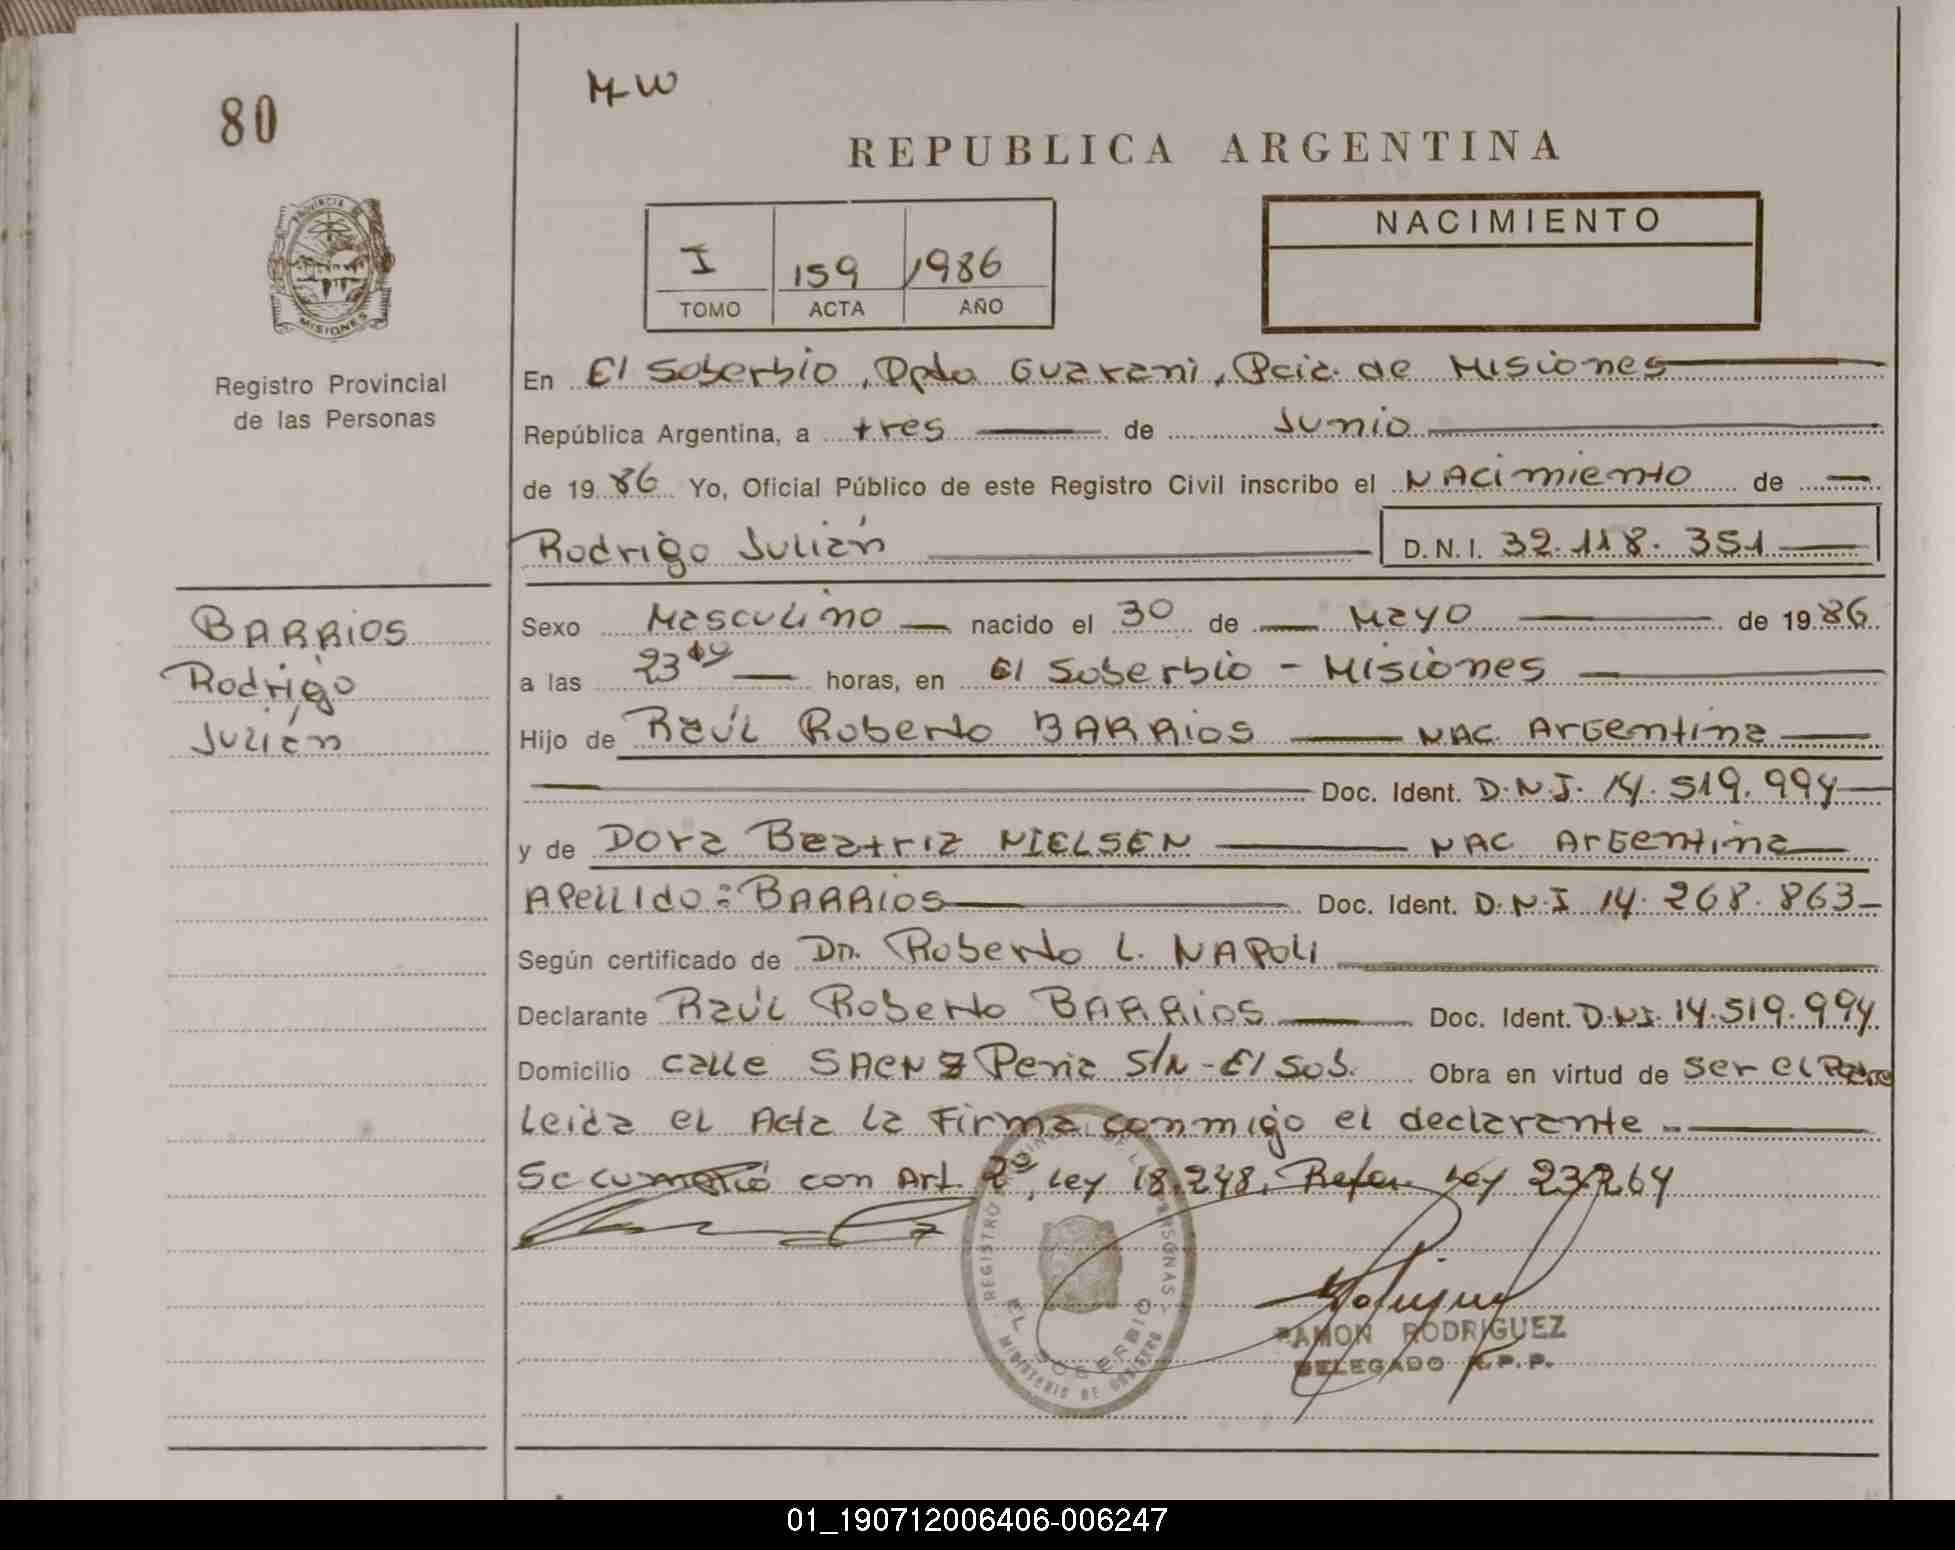 80
MW
REPUBLICA ARGENTINA
PROVINCIA DE
MISIONES
Registro Provincial
de las Personas
I 159 1986
TOMO ACTA AÑO
NACIMIENTO
En El Soberbio, Dpto Guarani, Pcia. de Misiones
República Argentina, a tres de Junio
de 1986 Yo, Oficial Público de este Registro Civil inscribo el Nacimiento de
Rodrigo Julián D.N.I. 32.118.351
BARRIOS
Rodrigo
Julián
Sexo Masculino nacido el 30 de Mayo de 1986
a las 23 horas, en El Soberbio - Misiones
Hijo de Raúl Roberto BARRIOS NAC Argentina
Doc. Ident. D.N.I. 14.519.994
y de Dora Beatriz NIELSEN NAC Argentina
Apellido: BARRIOS Doc. Ident. D.N.I 14.268.863
Según certificado de Dn. Roberto L. NAPOLI
Declarante Raúl Roberto BARRIOS Doc. Ident. D.N.I. 14.519.994
Domicilio calle SAENZ Peña S/N - El Sob. Obra en virtud de ser el Padre
Leida el Acta la Firma conmigo el declarante
Se cumplió con Art. 2º, Ley 18.248, Ley 23.264
REGISTRO PERSONAS
EL SOBERBIO
MINISTERIO DE GOBIERNO
RAMON RODRIGUEZ
DELEGADO R.P.P.
01_190712006406-006247